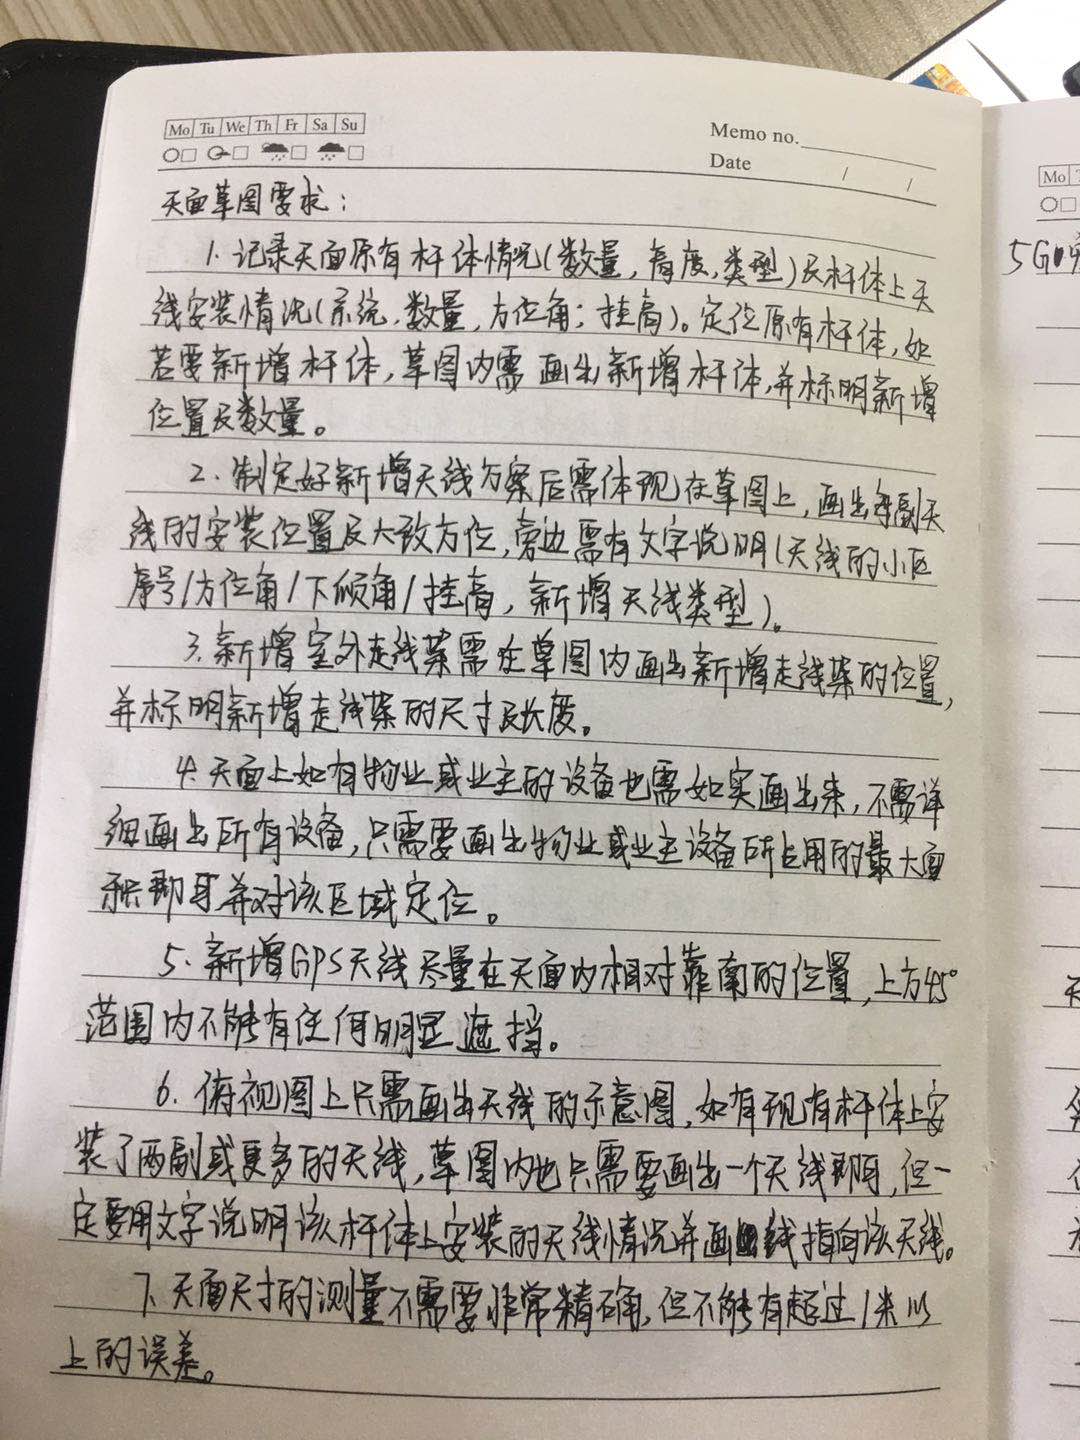 Mo Tu We Th Fr Sa Su
Memo no.
Date / /
天面草图要求:
1. 记录天面原有杆体情况(数量,高度,类型)及杆体上天
线安装情况(系统,数量,方位角;挂高)。定位原有杆体,如
若要新增杆体,草图内需画出新增杆体,并标明新增
位置及数量。
2. 制定好新增天线方案后需体现在草图上,画出每副天
线的安装位置及大致方位,旁边需有文字说明(天线的小区
序号/方位角/下倾角/挂高,新增天线类型)。
3. 新增室外走线架需在草图内画出新增走线架的位置,
并标明新增走线架的尺寸及长度。
4. 天面上如有物业或业主的设备也需如实画出来,不需详
细画出所有设备,只需要画出物业或业主设备所占用的最大面
积即可并对该区域定位。
5. 新增GPS天线尽量在天面内相对靠南的位置,上方45°
范围内不能有任何明显遮挡。
6. 俯视图上只需画出天线的示意图,如有现有杆体上安
装了两副或更多的天线,草图内也只需要画出一个天线即可,但一
定要用文字说明该杆体上安装的天线情况并画出线指向该天线。
7. 天面尺寸的测量不需要非常精确,但不能有超过1米以
上的误差。
Mo
5G